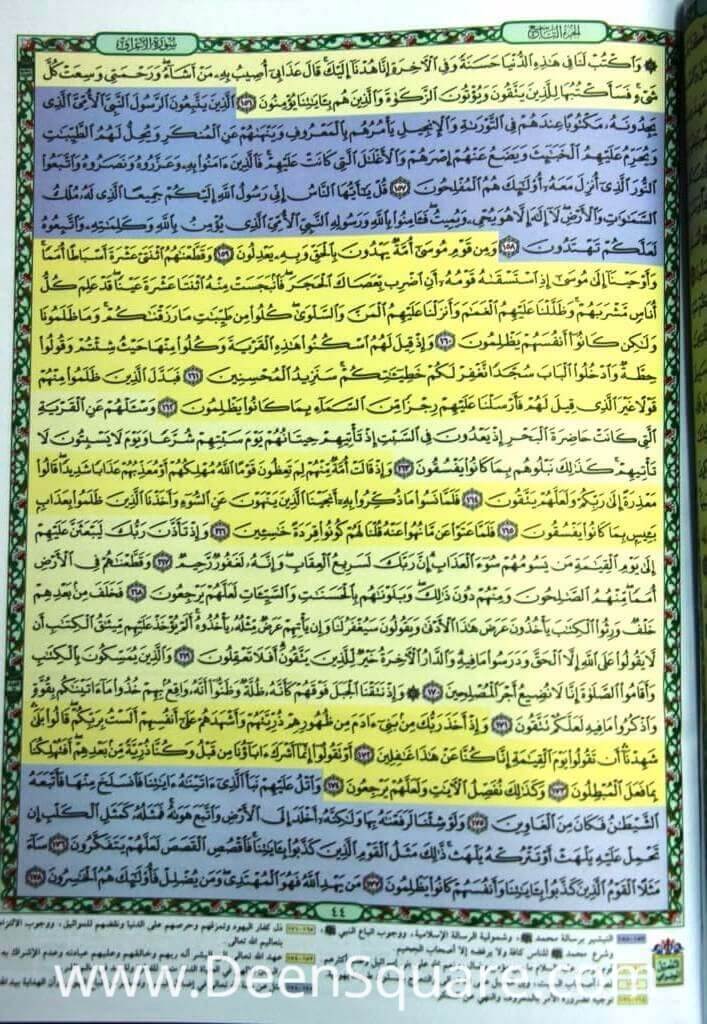 الجزء التاسع
سورة الأعراف
۞ واكتب لنا في هذه الدنيا حسنة وفي الآخرة إنا هدنا إليك قال عذابي أصيب به من أشاء ورحمتي وسعت كل
شيء فسأكتبها للذين يتقون ويؤتون الزكوة والذين هم بـٔايتنا يؤمنون ١٥٦ الذين يتبعون الرسول النبي الأمي الذي
يجدونه مكتوبا عندهم في التورىة والإنجيل يأمرهم بالمعروف وينهىهم عن المنكر ويحل لهم الطيبت
ويحرم عليهم الخبئث ويضع عنهم إصرهم والأغلل التي كانت عليهم فالذين ءامنوا به وعزروه ونصروه واتبعوا
النور الذي أنزل معه أولئك هم المفلحون ١٥٧ قل يأيها الناس إني رسول الله إليكم جميعا الذي له ملك
السموت والأرض لا إله إلا هو يحي ويميت فـٔامنوا بالله ورسوله النبي الأمي الذي يؤمن بالله وكلمته واتبعوه
لعلكم تهتدون ١٥٨ ومن قوم موسى أمة يهدون بالحق وبه يعدلون ١٥٩ وقطعنهم اثنتي عشرة أسباطا أمما
وأوحينا إلى موسى إذ استسقىه قومه أن اضرب بعصاك الحجر فانبجست منه اثنتا عشرة عينا قد علم كل
أناس مشربهم وظللنا عليهم الغمم وأنزلنا عليهم المن والسلوى كلوا من طيبت ما رزقنكم وما ظلمونا
ولكن كانوا أنفسهم يظلمون ١٦٠ وإذ قيل لهم اسكنوا هذه القرية وكلوا منها حيث شئتم وقولوا
حطة وادخلوا الباب سجدا نغفر لكم خطيئتكم سنزيد المحسنين ١٦١ فبدل الذين ظلموا منهم
قولا غير الذي قيل لهم فأرسلنا عليهم رجزا من السماء بما كانوا يظلمون ١٦٢ وسـٔلهم عن القرية
التي كانت حاضرة البحر إذ يعدون في السبت إذ تأتيهم حيتانهم يوم سبتهم شرعا ويوم لا يسبتون لا
تأتيهم كذلك نبلوهم بما كانوا يفسقون ١٦٣ وإذ قالت أمة منهم لم تعظون قوما الله مهلكهم أو معذبهم عذابا شديدا قالوا
معذرة إلى ربكم ولعلهم يتقون ١٦٤ فلما نسوا ما ذكروا به أنجينا الذين ينهون عن السوء وأخذنا الذين ظلموا بعذاب
بـٔيس بما كانوا يفسقون ١٦٥ فلما عتوا عن ما نهوا عنه قلنا لهم كونوا قردة خسئين ١٦٦ وإذ تأذن ربك ليبعثن عليهم
إلى يوم القيمة من يسومهم سوء العذاب إن ربك لسريع العقاب وإنه لغفور رحيم ١٦٧ وقطعنهم في الأرض
أمما منهم الصلحون ومنهم دون ذلك وبلونهم بالحسنت والسيئات لعلهم يرجعون ١٦٨ فخلف من بعدهم
خلف ورثوا الكتب يأخذون عرض هذا الأدنى ويقولون سيغفر لنا وإن يأتهم عرض مثله يأخذوه ألم يؤخذ عليهم ميثق الكتب أن
لا يقولوا على الله إلا الحق ودرسوا ما فيه والدار الآخرة خير للذين يتقون أفلا تعقلون ١٦٩ والذين يمسكون بالكتب
وأقاموا الصلوة إنا لا نضيع أجر المصلحين ١٧٠ ۞ وإذ نتقنا الجبل فوقهم كأنه ظلة وظنوا أنه واقع بهم خذوا ما ءاتينكم بقوة
واذكروا ما فيه لعلكم تتقون ١٧١ وإذ أخذ ربك من بني ءادم من ظهورهم ذريتهم وأشهدهم على أنفسهم ألست بربكم قالوا بلى
شهدنا أن تقولوا يوم القيمة إنا كنا عن هذا غفلين ١٧٢ أو تقولوا إنما أشرك ءاباؤنا من قبل وكنا ذرية من بعدهم أفتهلكنا
بما فعل المبطلون ١٧٣ وكذلك نفصل الآيت ولعلهم يرجعون ١٧٤ واتل عليهم نبأ الذي ءاتينه ءايتنا فانسلخ منها فأتبعه
الشيطن فكان من الغاوين ١٧٥ ولو شئنا لرفعنه بها ولكنه أخلد إلى الأرض واتبع هوىه فمثله كمثل الكلب إن
تحمل عليه يلهث أو تتركه يلهث ذلك مثل القوم الذين كذبوا بـٔايتنا فاقصص القصص لعلهم يتفكرون ١٧٦ ساء
مثلا القوم الذين كذبوا بـٔايتنا وأنفسهم كانوا يظلمون ١٧٧ من يهد الله فهو المهتدي ومن يضلل فأولئك هم الخسرون ١٧٨
٤٤
التبشير برسالة محمد ﷺ، وشمولية الرسالة الإسلامية، ووجوب اتباع النبي ﷺ
وشرع محمد ﷺ للناس كافة ولا يرفضه إلا أصحاب الجحيم
توجيه لضرورة الأمر بالمعروف والنهي عن
ذل كفار اليهود وتمزقهم وحرصهم على الدنيا ونقضهم للمواثيق، ووجوب
بتعاليم الله تعالى
www.DeenSquare.com